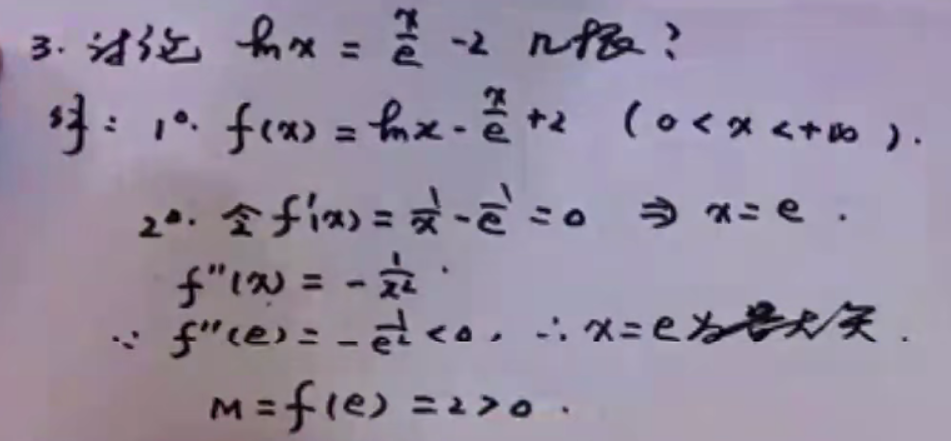 3. 讨论 ln x = x/e - 2 几根?
解: 1°. f(x) = ln x - x/e + 2 (0 < x < +∞).
2°. 令 f'(x) = 1/x - 1/e = 0 ⇒ x = e.
f''(x) = - 1/x².
∵ f''(e) = - 1/e² < 0, ∴ x = e 为最大点.
M = f(e) = 2 > 0.